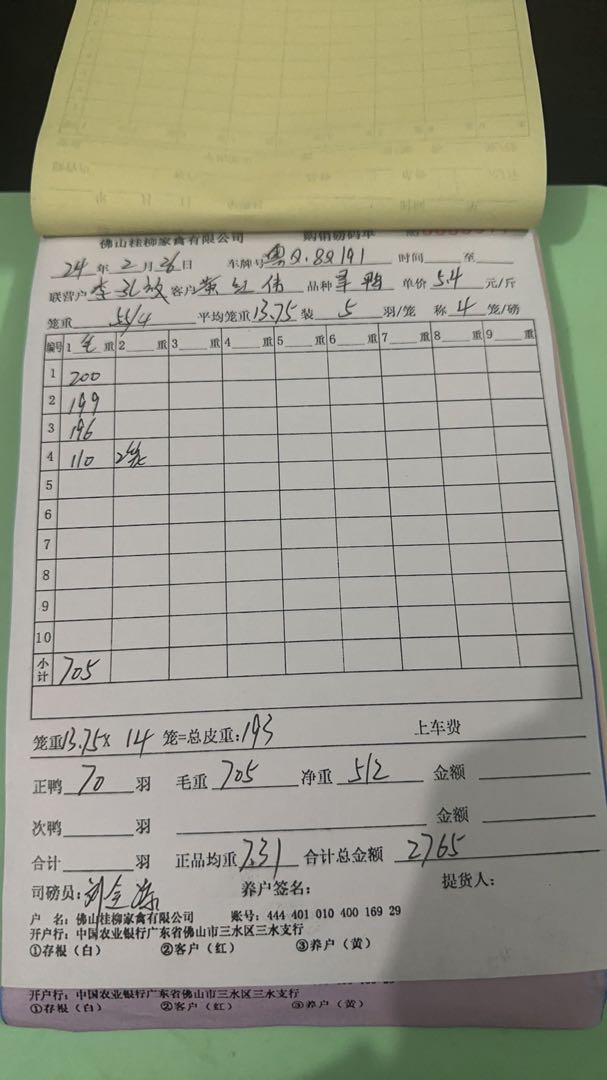 佛山桂柳家禽有限公司 购销磅码单
24年2月26日 车牌号粤Q.8Q191 时间 至
联营户李 客户黄红伟 品种旱鸭 单价5.4元/斤
笼重55/4 平均笼重13.75装5羽/笼 称4笼/磅
编号 1毛重 2重 3重 4重 5重 6重 7重 8重 9重
1 200
2 199
3 196
4 110 2笼
5
6
7
8
9
10
小计 705
笼重13.75×14笼=总皮重:193 上车费
正鸭70羽 毛重705 净重512 金额
次鸭 羽 金额
合计 羽 正品均重7.31 合计总金额2765
司磅员:刘金 养户签名: 提货人:
户 名:佛山桂柳家禽有限公司 账号:444 401 010 400 169 29
开户行:中国农业银行广东省佛山市三水区三水支行
①存根(白) ②客户(红) ③养户(黄)
开户行:中国农业银行广东省佛山市三水区三水支行
①存根(白) ②客户(红) ③养户(黄)